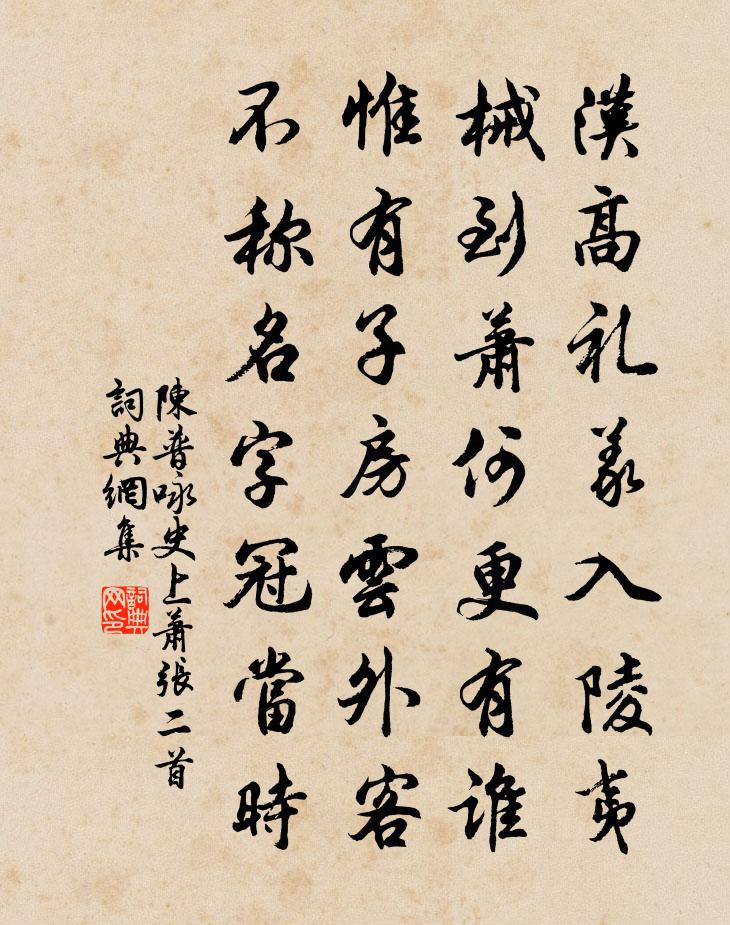 漢高礼義入陵夷
械到蕭何更有谁
惟有子房雲外客
不称名字冠當時
陳普咏史上蕭張二首
詞典網集
詞典网印